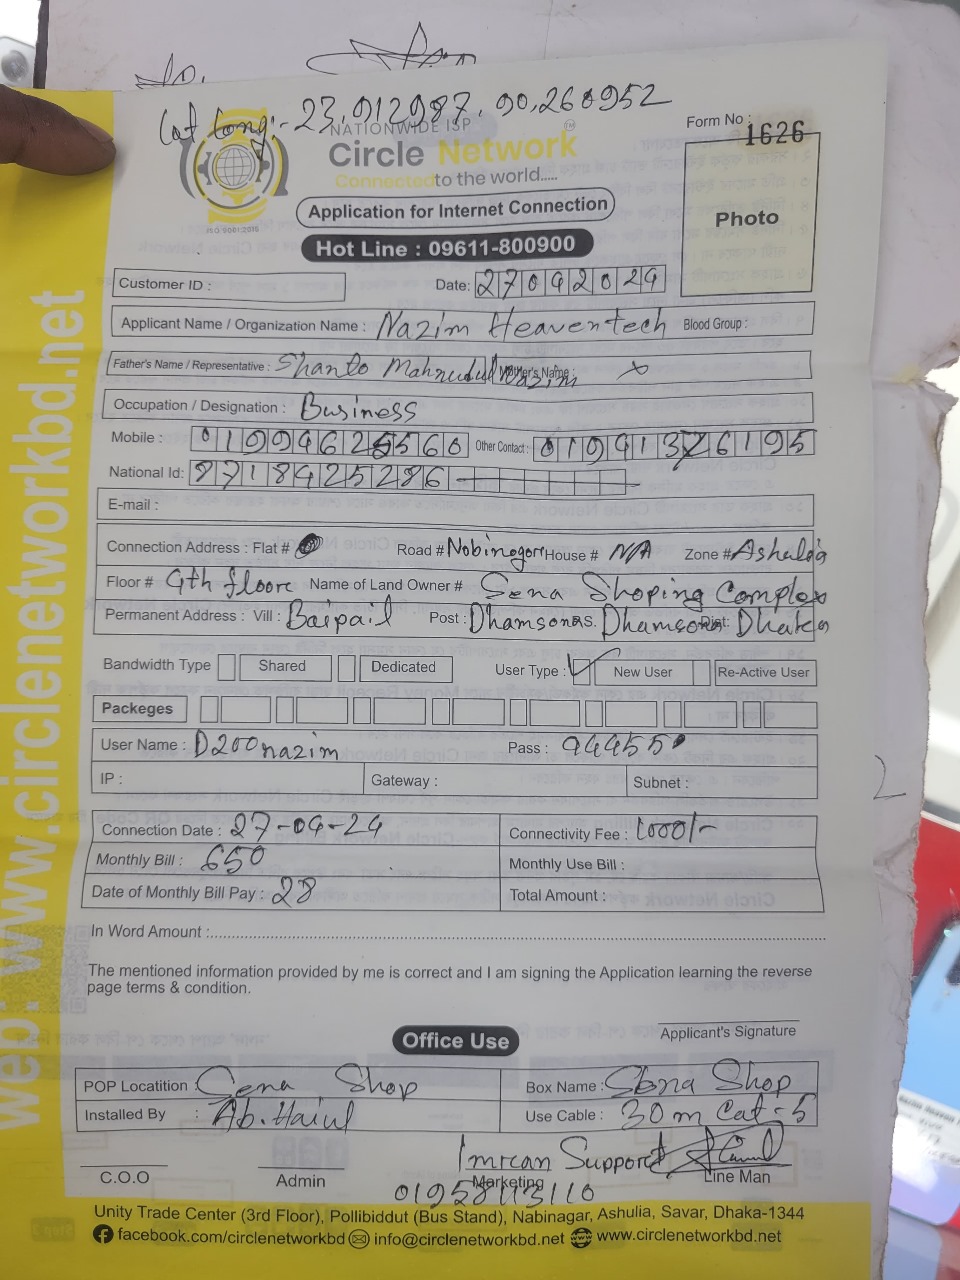 Lat Long:- 23.912987, 90.260952
NATIONWIDE ISP
Circle Network
TM
Connected to the world.....
ISO 9001:2015
Form No : 1626
Photo
Application for Internet Connection
Hot Line : 09611-800900
Customer ID :
Date: 27042024
Applicant Name / Organization Name : Nazim Heaventech Blood Group :
Father's Name / Representative : Shanto Mahmudul Nazim Mother's Name : x
Occupation / Designation : Business
Mobile : 01994625560 Other Contact : 01941376195
National Id: 8718425286
E-mail :
Connection Address : Flat # Road # Nobinogor House # N/A Zone # Ashulia
Floor # 4th floore Name of Land Owner # Sena Shoping Complex
Permanent Address : Vill : Baipail Post : Dhamsona P.S. Dhamsona Dist: Dhaka
Bandwidth Type Shared Dedicated User Type : New User Re-Active User
Packeges
User Name : D200nazim Pass : 94455
IP : Gateway : Subnet :
Connection Date : 27-04-24 Connectivity Fee : 1000/-
Monthly Bill : 650 Monthly Use Bill :
Date of Monthly Bill Pay : 28 Total Amount :
In Word Amount :
The mentioned information provided by me is correct and I am signing the Application learning the reverse
page terms & condition.
Applicant's Signature
Office Use
POP Locatition : Sena Shop Box Name : Sena Shop
Installed By : Ab. Haiul Use Cable : 30m Cat-5
Imran Support
C.O.O Admin Marketing Line Man
01958113110
Unity Trade Center (3rd Floor), Pollibiddut (Bus Stand), Nabinagar, Ashulia, Savar, Dhaka-1344
facebook.com/circlenetworkbd info@circlenetworkbd.net www.circlenetworkbd.net
web: www.circlenetworkbd.net